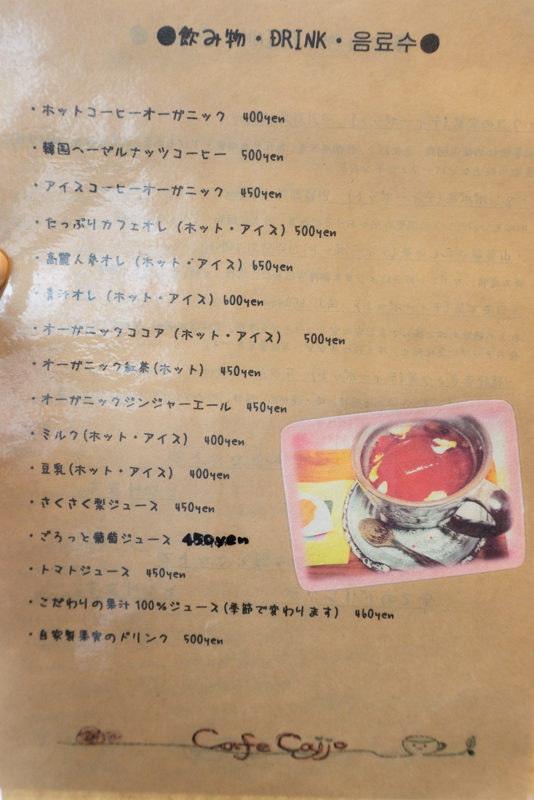 ●飲み物・DRINK・음료수●
・ホットコーヒーオーガニック 400yen
・韓国ヘーゼルナッツコーヒー 500yen
・アイスコーヒーオーガニック 450yen
・たっぷりカフェオレ（ホット・アイス）500yen
・高麗人参オレ（ホット・アイス）650yen
・青汁オレ（ホット・アイス）600yen
・オーガニックココア（ホット・アイス） 500yen
・オーガニック紅茶(ホット) 450yen
・オーガニックジンジャーエール 450yen
・ミルク(ホット・アイス) 400yen
・豆乳(ホット・アイス) 400yen
・さくさく梨ジュース 450yen
・ごろっと葡萄ジュース 450yen
・トマトジュース 450yen
・こだわりの果汁100%ジュース(季節で変わります) 460yen
・自家製果実のドリンク 500yen
Cafe Cajjo